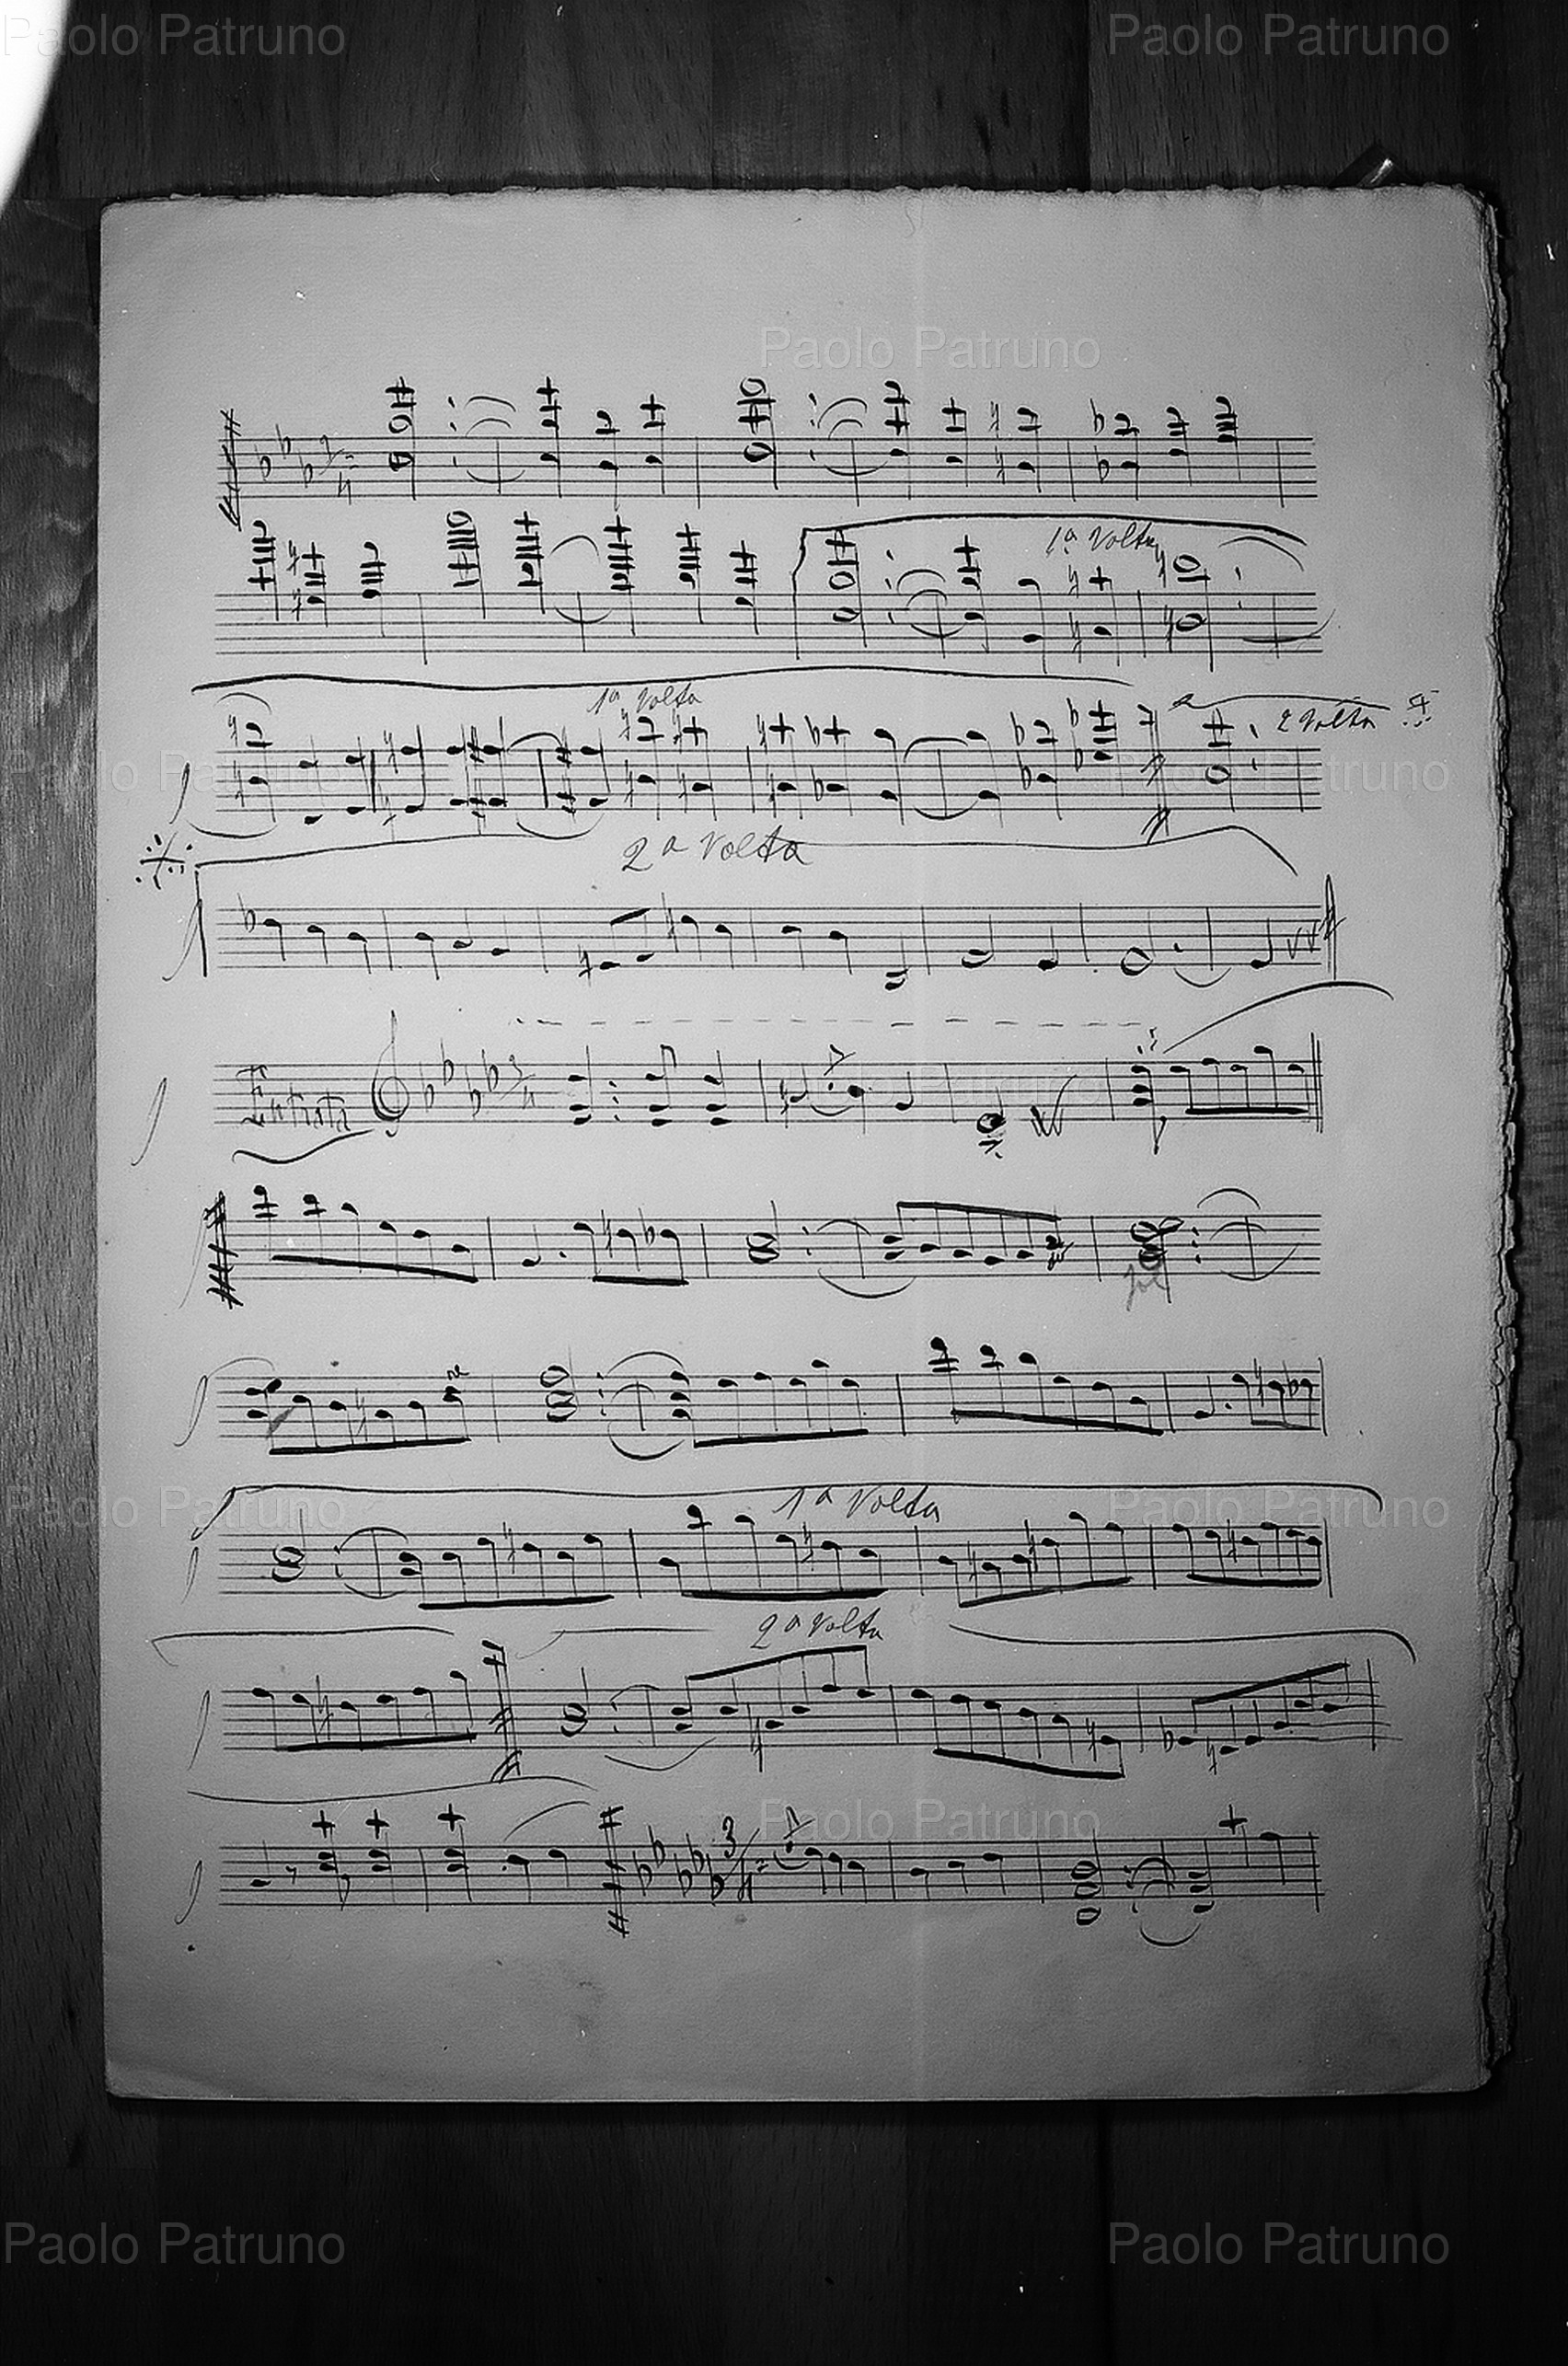 Paolo Patruno Paolo Patruno
Paolo Patruno
1a Volta
1a Volta
2 Volta
Paolo Patruno Paolo Patruno
2a Volta
Entrata
3
4
Paolo Patruno
Paolo Patruno 1a Volta Paolo Patruno
2a Volta
Paolo Patruno
3
4
Paolo Patruno Paolo Patruno